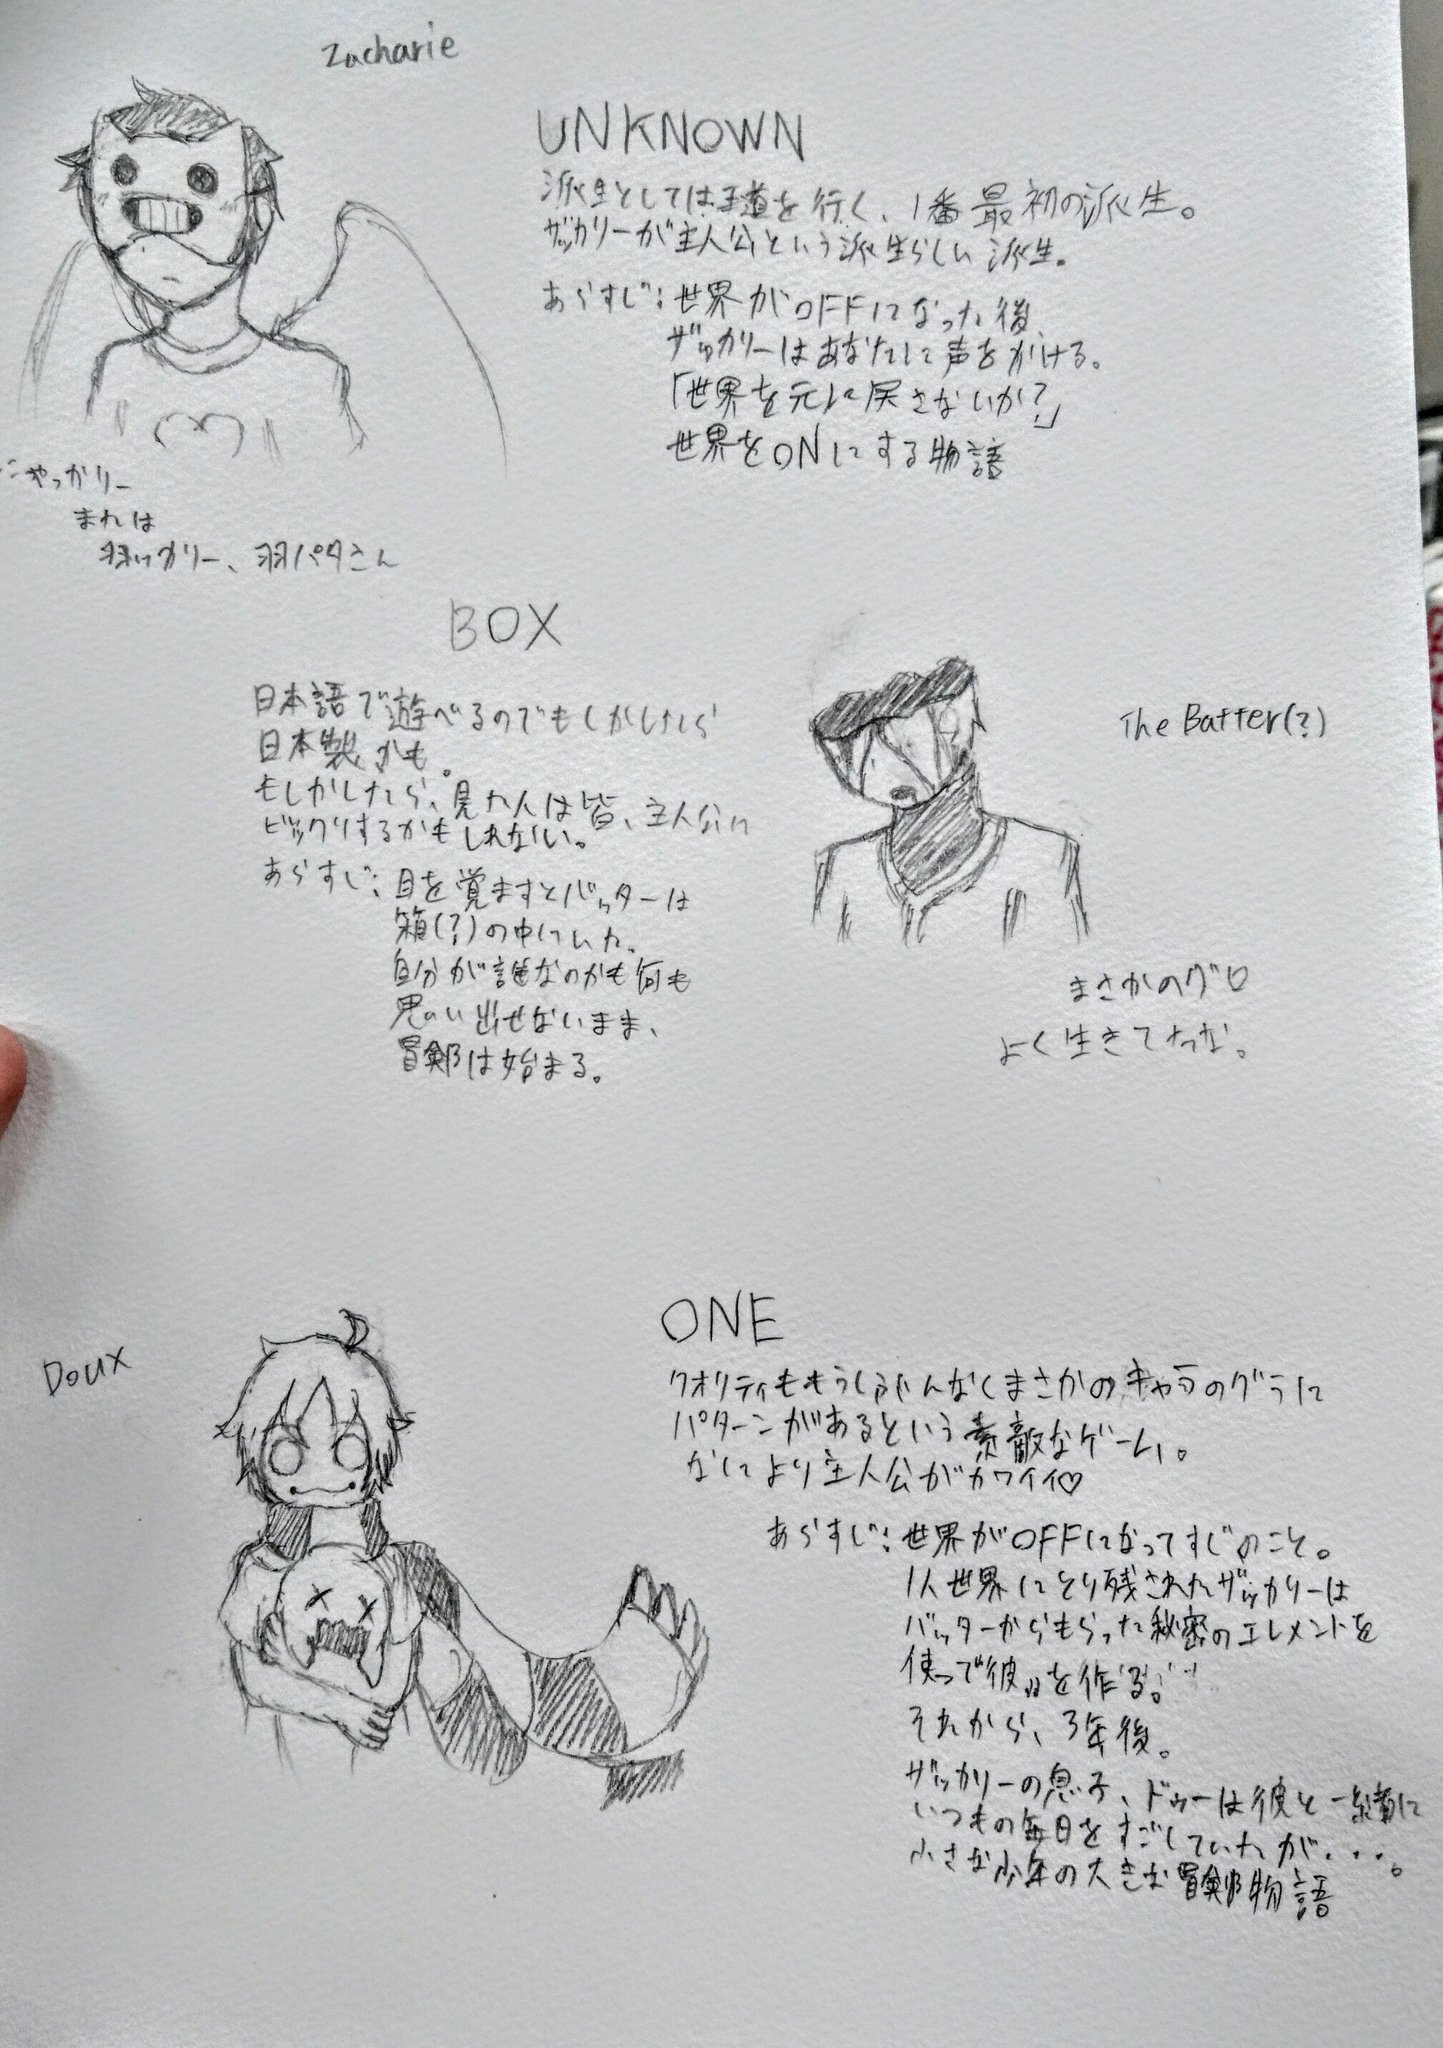 Zacharie
UNKNOWN
派生としては王道を行く、1番最初の派生。
ザッカリーが主人公という派生らしい派生。
あらすじ:世界がOFFになった後、
ザッカリーはあなたに声をかける。
「世界を元に戻さないか?」
世界をONにする物語
にゃっかりー
または
羽ッカリー、羽パタさん
BOX
日本語で遊べるのでもしかしたら
日本製かも。
もしかしたら、見た人は皆、主人公に
ビックリするかもしれない。
あらすじ:目を覚ますとバッターは
箱(?)の中にいた。
自分が誰なのかも何も
思い出せないまま、
冒険は始まる。
The Batter(?)
まさかのグロ
よく生きてたな。
Doux
ONE
クオリティももうしぶんなくまさかのキャラのグラに
パターンがあるという素敵なゲーム。
なにより主人公がカワイイ♡
あらすじ:世界がOFFになってすぐのこと。
1人世界にとり残されたザッカリーは
バッターからもらった秘密のエレメントを
使って"彼"を作る。
それから、3年後。
ザッカリーの息子、ドゥーは彼と一緒に
いつもの毎日をすごしていたが・・・。
小さな少年の大きな冒険物語